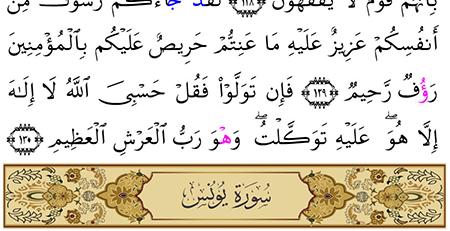 بِأَنَّهُمْ قَوْمٌ لَّا يَفْقَهُونَ ﴿١١٨﴾ لَقَدْ جَاءَكُمْ رَسُولٌ مِّنْ
أَنفُسِكُمْ عَزِيزٌ عَلَيْهِ مَا عَنِتُّمْ حَرِيصٌ عَلَيْكُم بِالْمُؤْمِنِينَ
رَؤُفٌ رَّحِيمٌ ﴿١٢٩﴾ فَإِن تَوَلَّوْا فَقُلْ حَسْبِيَ اللَّهُ لَا إِلَٰهَ
إِلَّا هُوَ ۖ عَلَيْهِ تَوَكَّلْتُ ۖ وَهْوَ رَبُّ الْعَرْشِ الْعَظِيمِ ﴿١٣٠﴾
سُورَةُ يُونُسَ